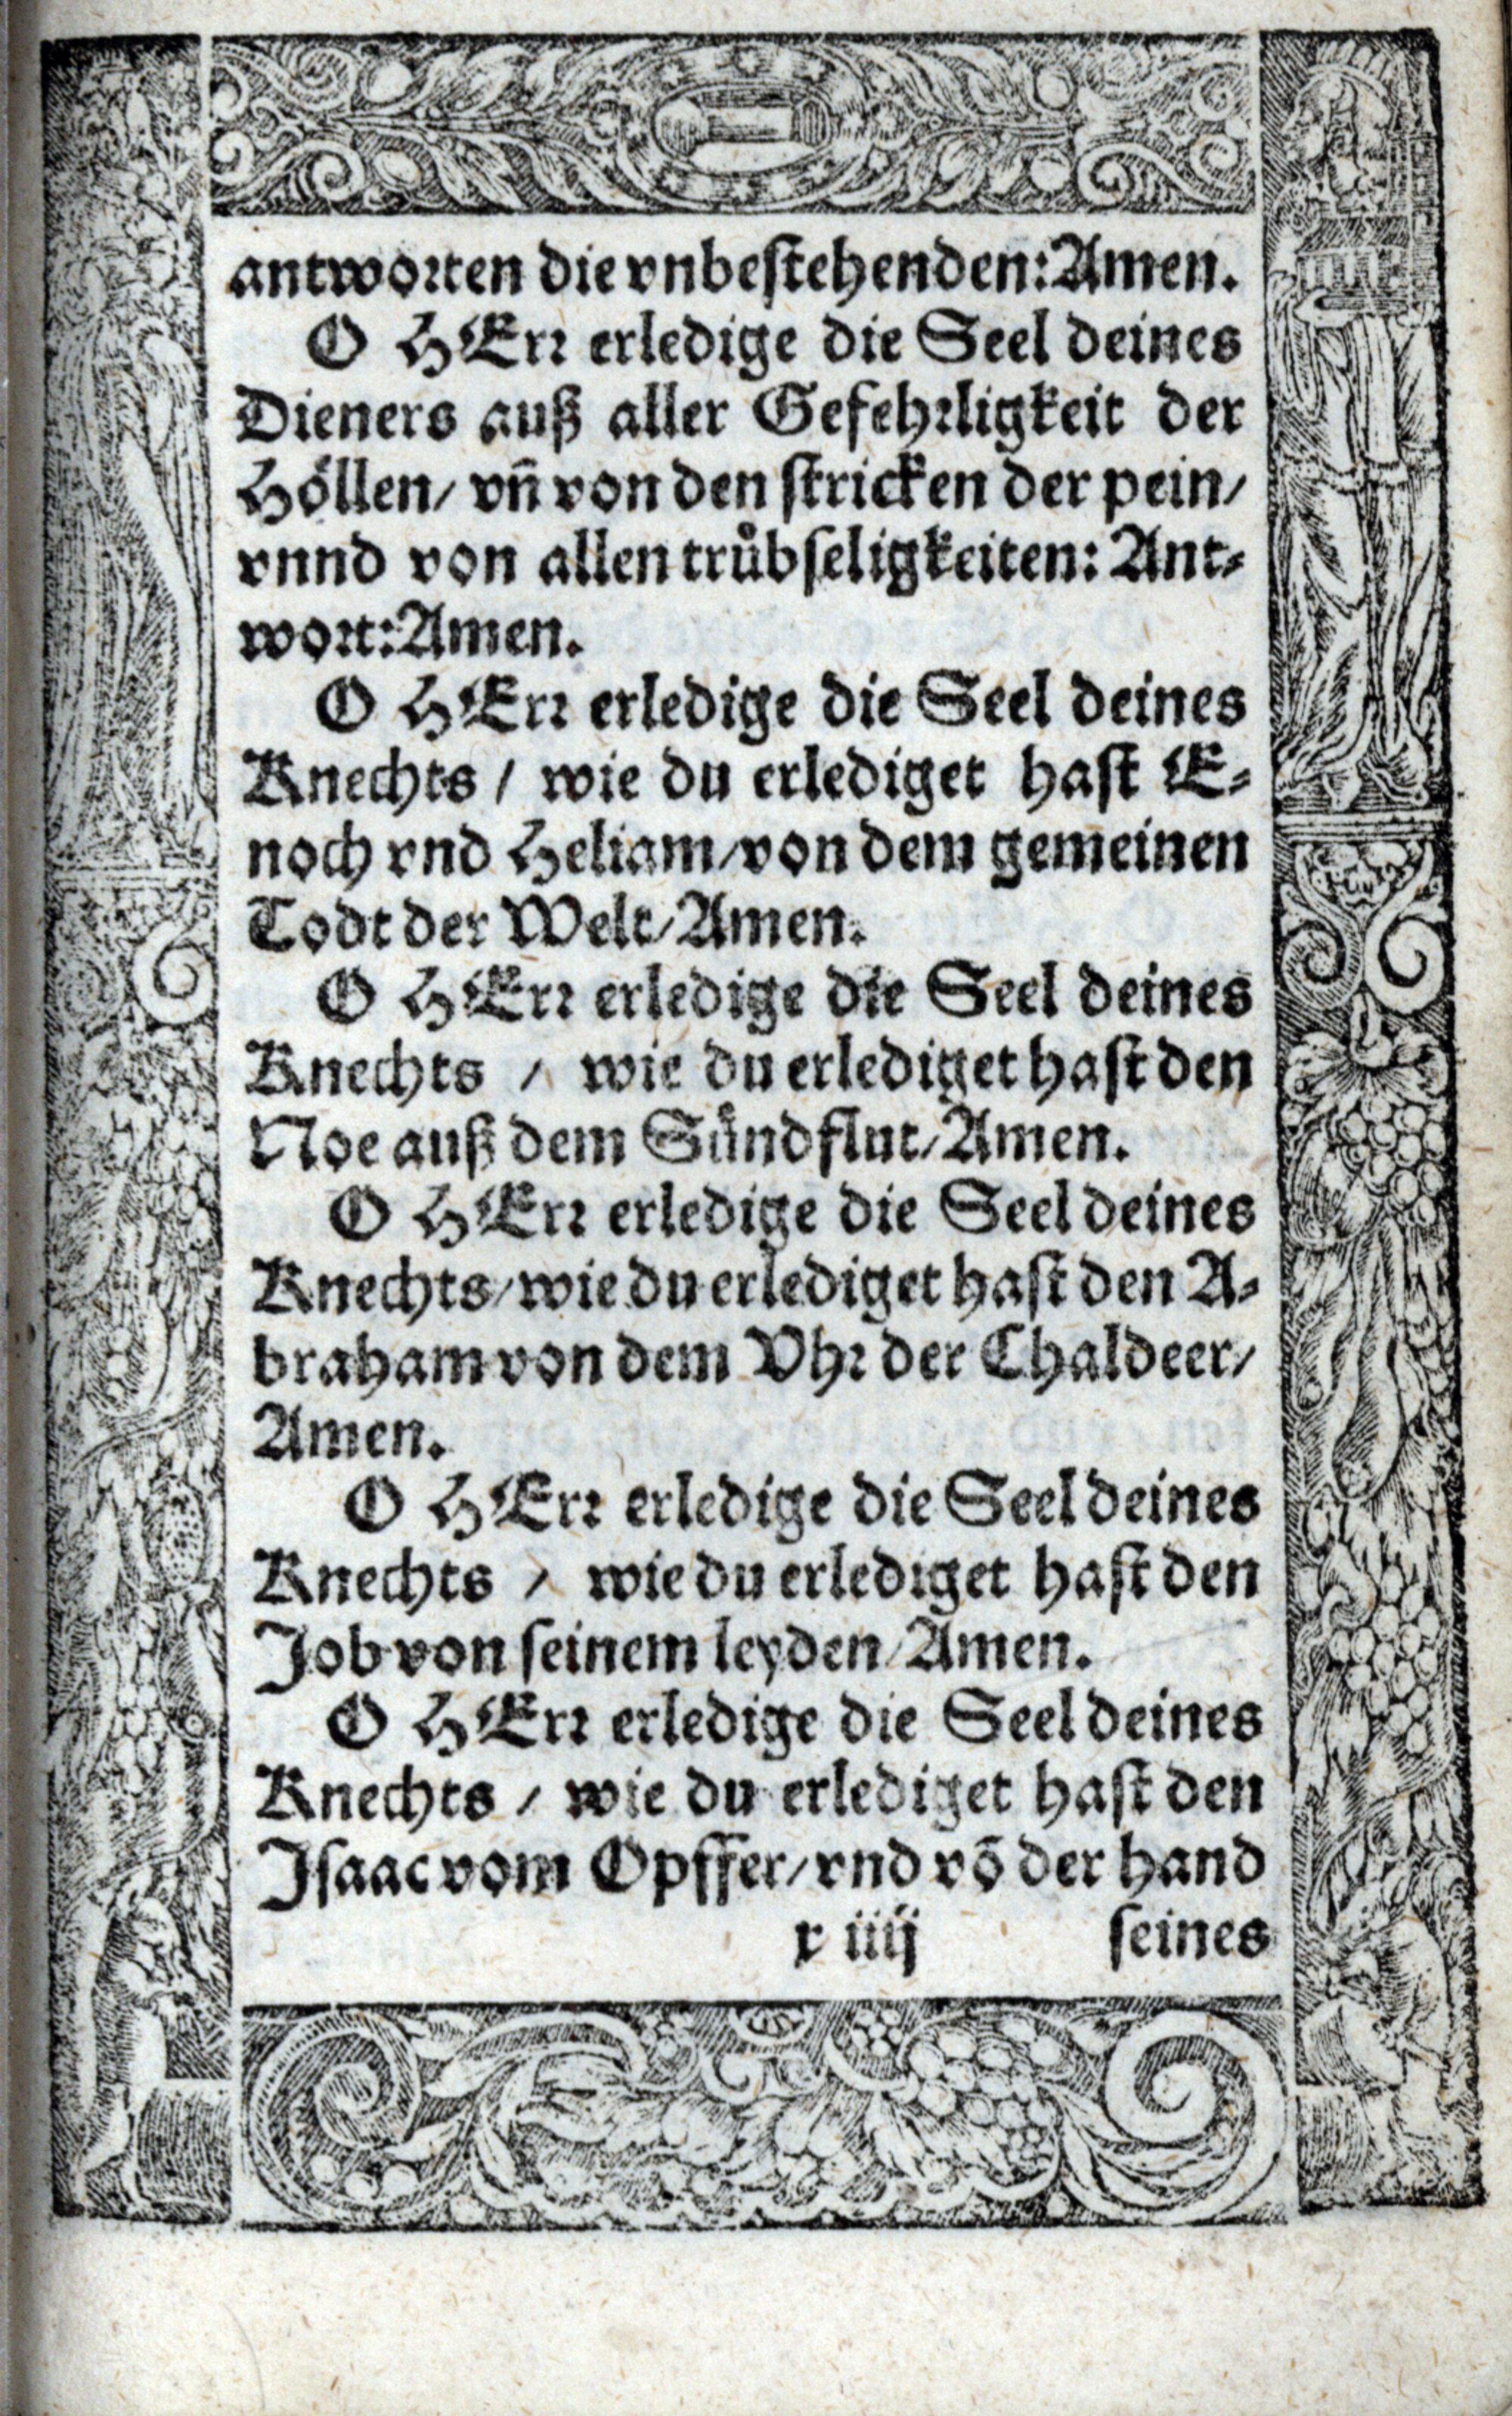 antworten die vnbestehenden: Amen.
O HErr erledige die Seel deines
Dieners auß aller Gefehrligkeit der
Hoͤllen/ vñ von den stricken der pein/
vnnd von allen truͤbseligkeiten: Ant-
wort: Amen.
O HErr erledige die Seel deines
Knechts / wie du erlediget hast E-
noch vnd Heliam/ von dem gemeinen
Todt der Welt/ Amen.
O HErr erledige die Seel deines
Knechts / wie du erlediget hast den
Noe auß dem Suͤndflut/ Amen.
O HErr erledige die Seel deines
Knechts/ wie du erlediget hast den A-
braham von dem Vhr der Chaldeer/
Amen.
O HErr erledige die Seel deines
Knechts / wie du erlediget hast den
Job von seinem leyden/ Amen.
O HErr erledige die Seel deines
Knechts / wie du erlediget hast den
Isaac vom Opffer/ vnd võ der hand
x iiij seines